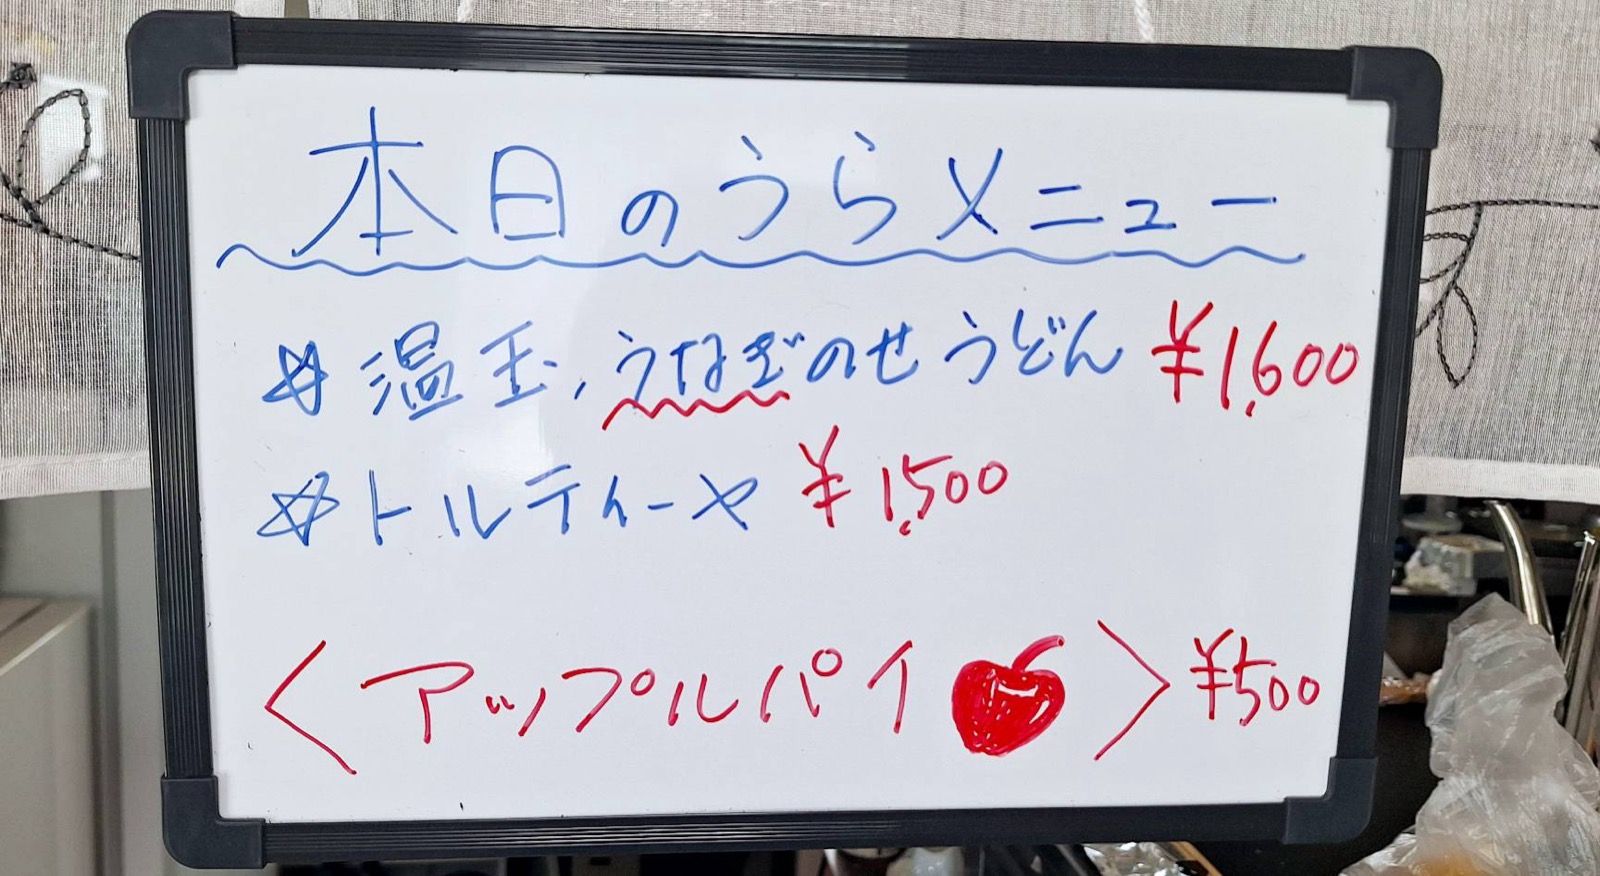 本日のうらメニュー
☆温玉、うなぎのせうどん ¥1,600
☆トルティーヤ ¥1,500
〈アップルパイ〉¥500